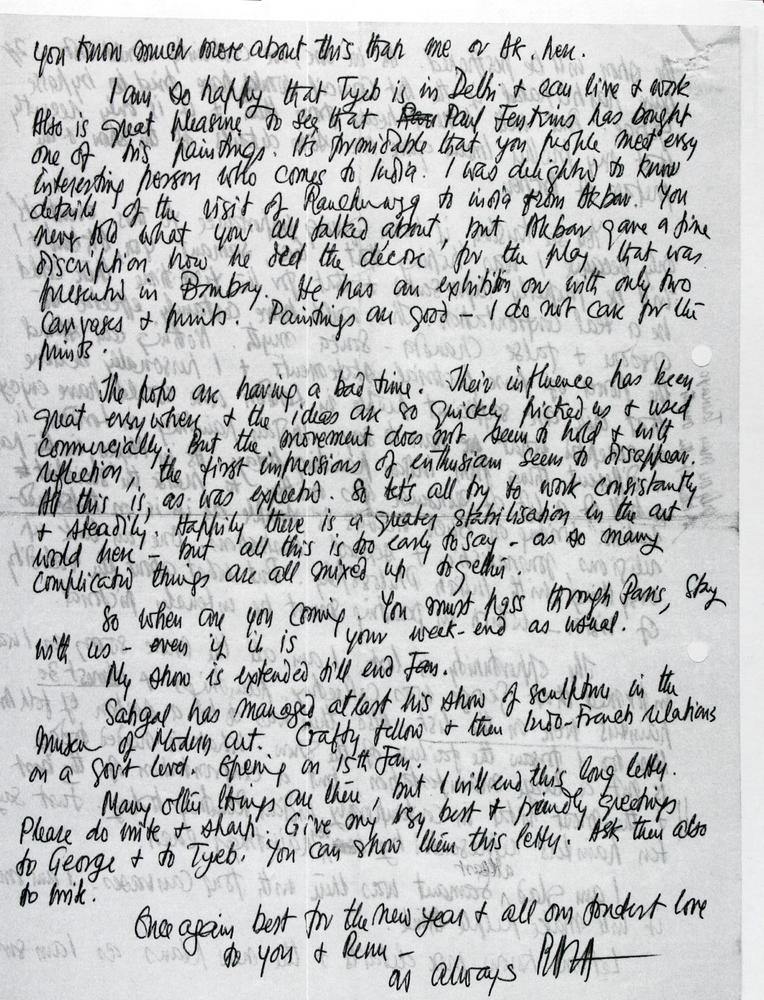 you know much more about this than me or Ak. here.
I am so happy that Tyeb is in Delhi & can live & work
Also is great pleasure to see that Paul Jenkins has bought
one of his paintings. It's formidable that you people meet every
interesting person who comes to India. I was delighted to know
details of the visit of to india from Akbar. You
never told what you all talked about, but Akbar gave a fine
discription how he did the décore for the play that was
presented in Bombay. He has an exhibition on with only two
canvases & prints. Paintings are good – I do not care for the
prints.
The pops are having a bad time. Their influence has been
great everywhere & the ideas are so quickly picked up & used
commercially. But the movement does not seem to hold & with
reflection, the first impressions of enthusiasm seems to disappear.
All this is, as was expected. So let's all try to work consistantly
& steadily. Happily there is a greater stabilisation in the art
world here – but all this is too early to say – as so many
complicated things are all mixed up together.
So when are you coming. You must pass through Paris, stay
with us – even if it is your week-end as usual.
My show is extended till end Jan.
Sahgal has managed at last his show of sculpture in the
Museum of Modern art. Crafty fellow & then Indo-French relations
on a gov't level. Opening on 15th Jan.
Many other things are there, but I will end this long letter.
Please do write & sharp. Give my very best & friendly greetings
to George & to Tyeb. You can show them this letter. Ask them also
to write.
Once again best for the new year & all our fondest love
to you & Renu –
as always